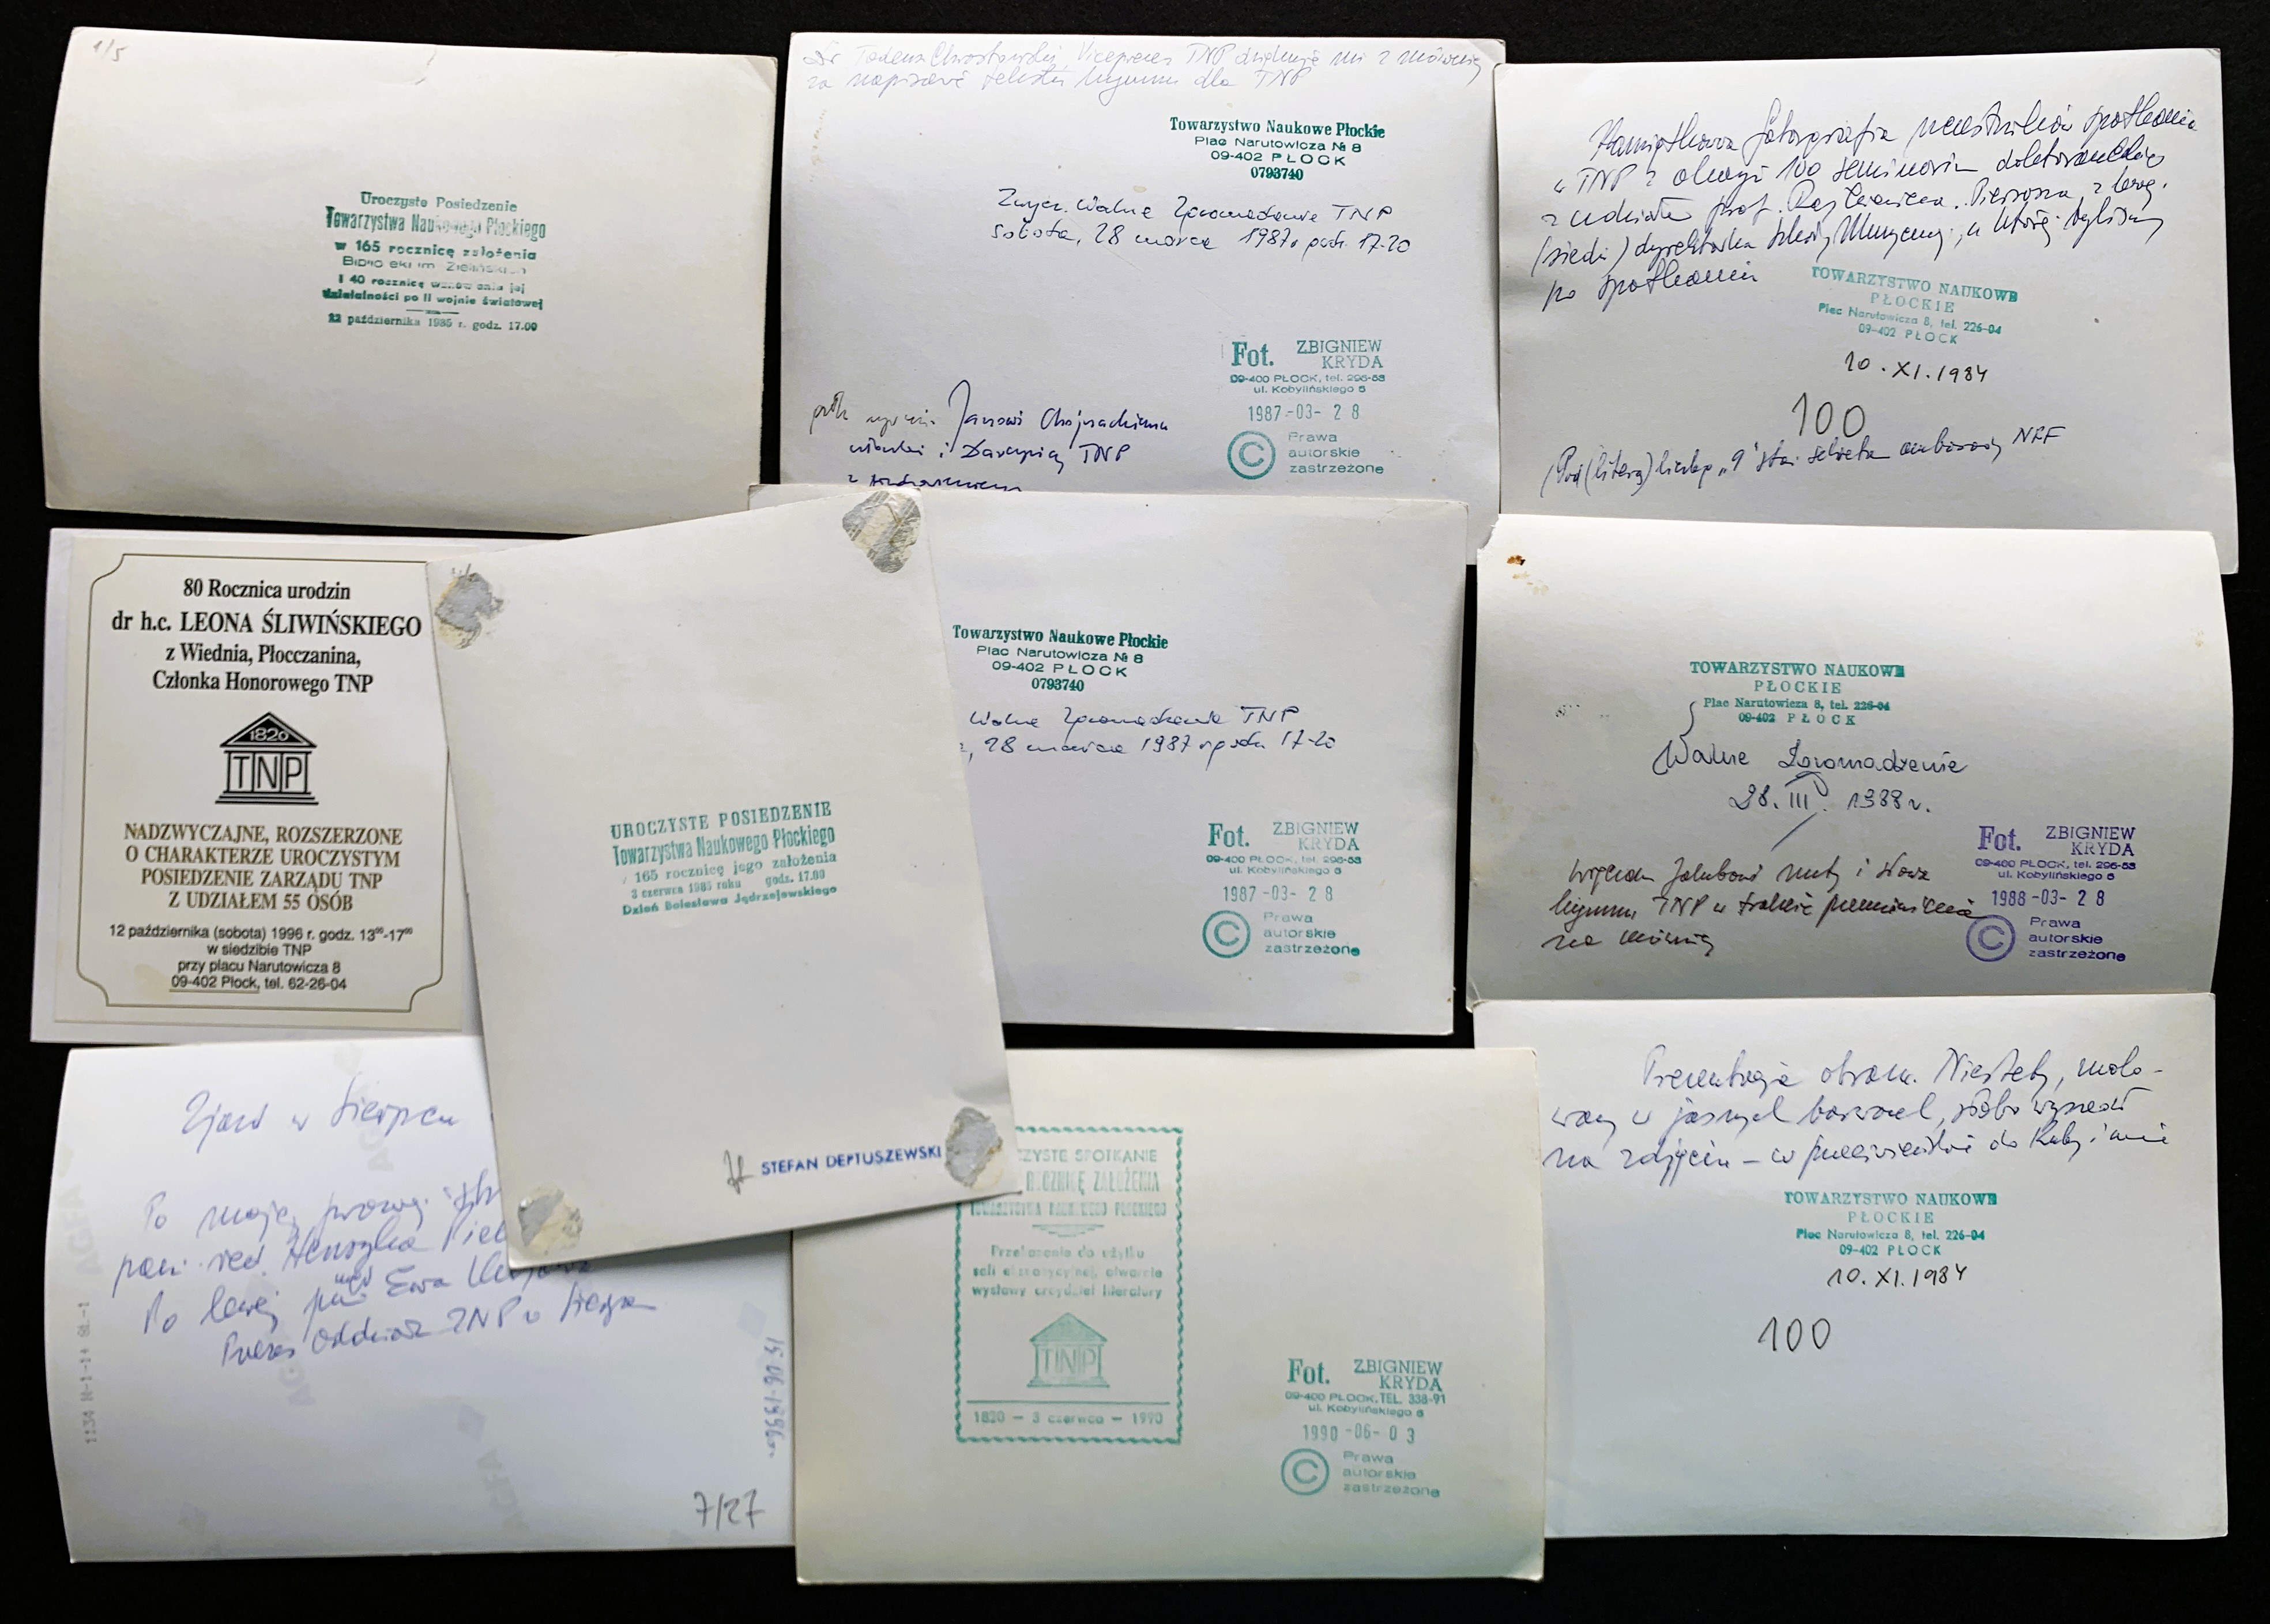 1/5
Uroczyste Posiedzenie
Towarzystwa Naukowego Płockiego
w 165 rocznicę założenia
im. Zielińskich
i 40 rocznicę jej
działalności po II wojnie światowej
22 października 1985 r. godz. 17.00
Dr Tadeusz Chrostowski, Viceprezes TNP dziękuje mi z mównicy
za napisanie tekstu hymnu dla TNP
Towarzystwo Naukowe Płockie
Plac Narutowicza № 8
09-402 PŁOCK
0793740
Zwycz. Walne Zgromadzenie TNP
sobota, 28 marca 1987 r godz. 17-20
Fot. ZBIGNIEW
KRYDA
09-400 PŁOCK, tel. 296-53
ul. Kobylińskiego 6
1987-03-28
© Prawa
autorskie
zastrzeżone
Janowi Chojnackiemu
i TNP
Pamiątkowa fotografia uczestników spotkania
w TNP z okazji 100 seminarium doktoranckiego
z udziałem prof. Pierwsza z lewej
(siedzi) dyrektorka Szkoły Muzycznej, w której byliśmy
po spotkaniu
TOWARZYSTWO NAUKOWE
PŁOCKIE
Plac Narutowicza 8, tel. 226-04
09-402 PŁOCK
10.XI.1984
100
(Pod (literą) liczbą „9" stoi ambasady NRF
80 Rocznica urodzin
dr h.c. LEONA ŚLIWIŃSKIEGO
z Wiednia, Płocczanina,
Członka Honorowego TNP
1820
TNP
NADZWYCZAJNE, ROZSZERZONE
O CHARAKTERZE UROCZYSTYM
POSIEDZENIE ZARZĄDU TNP
Z UDZIAŁEM 55 OSÓB
12 października (sobota) 1996 r. godz. 13⁰⁰-17⁰⁰
w siedzibie TNP
przy placu Narutowicza 8
09-402 Płock, tel. 62-26-04
UROCZYSTE POSIEDZENIE
Towarzystwa Naukowego Płockiego
165 rocznicę jego założenia
3 czerwca 1985 roku godz. 17.00
Dzień Bolesława Jędrzejewskiego
STEFAN DEPTUSZEWSKI
Towarzystwo Naukowe Płockie
Plac Narutowicza № 8
09-402 PŁOCK
0793740
Walne Zgromadzenie TNP
28 marca 1987 r godz. 17-20
Fot. ZBIGNIEW
KRYDA
09-400 PŁOCK, tel. 296-53
ul. Kobylińskiego 6
1987-03-28
© Prawa
autorskie
zastrzeżone
TOWARZYSTWO NAUKOWE
PŁOCKIE
Plac Narutowicza 8, tel. 226-04
09-402 PŁOCK
Walne Zgromadzenie
28.III.1988 r.
Wręczam nuty i słowa
hymnu TNP w trakcie przemówienia
na mównicy
Fot. ZBIGNIEW
KRYDA
09-400 PŁOCK, tel. 296-53
ul. Kobylińskiego 6
1988-03-28
© Prawa
autorskie
zastrzeżone
Zjazd w Sierpcu
Po mojej prawej
pani red. Henryka
Po lewej Ewa
Prezes Oddziału TNP w Sierpcu
AGFA
7/27
CZYSTE SPOTKANIE
ROCZNICĘ ZAŁOŻENIA
TOWARZYSTWA NAUKOWEGO PŁOCKIEGO
Przekazanie do użytku
sali ekspozycyjnej, otwarcie
wystawy arcydzieł literatury
TNP
1820 – 3 czerwca – 1990
Fot. ZBIGNIEW
KRYDA
09-400 PŁOCK, TEL. 338-91
ul. Kobylińskiego 6
1990-06-03
© Prawa
autorskie
zastrzeżone
Prezentacja obrazu. Niestety, malo-
wany w jasnych barwach, słabo wyszedł
na zdjęciu – w przeciwieństwie do
TOWARZYSTWO NAUKOWE
PŁOCKIE
Plac Narutowicza 8, tel. 226-04
09-402 PŁOCK
10.XI.1984
100